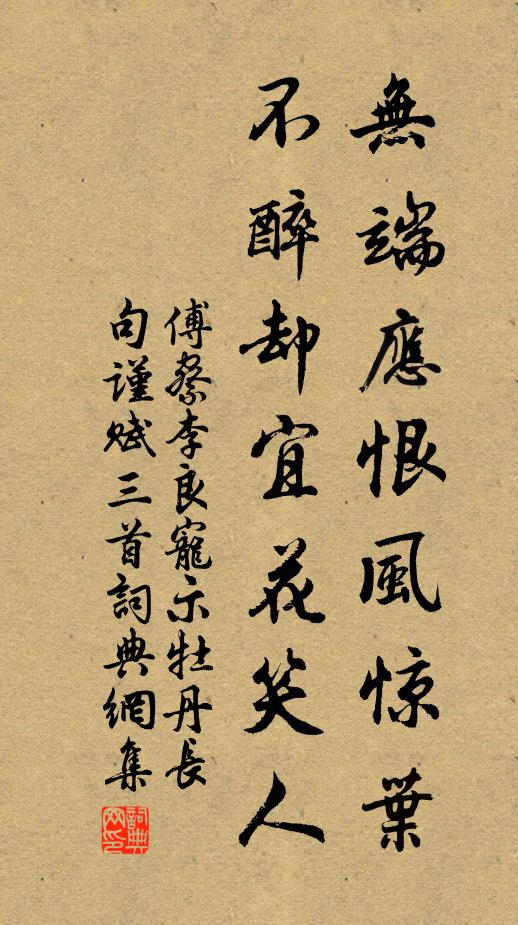 無端應恨風惊葉
不醉却宜花笑人
傅察李良寵示牡丹長
句謹賦三首詞典網集
詞典網印